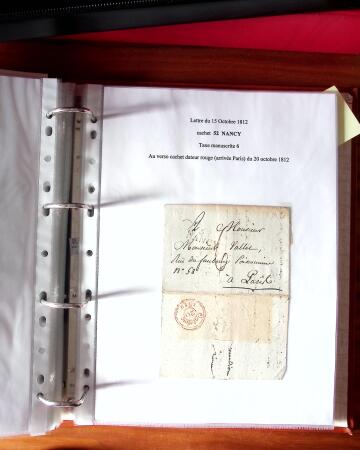 Lettre du 15 Octobre 1812
cachet 52 NANCY
Taxe manuscrite 6
Au verso cachet dateur rouge (arrivée Paris) du 20 octobre 1812
A Monsieur
Monsieur Vallet,
Rue du faubourg Poissonniere
N° 58
à Paris